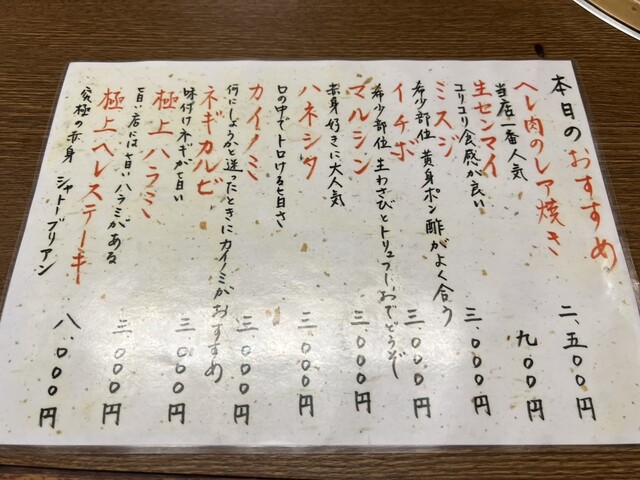 本日のおすすめ
ヘレ肉のレア焼き 二、五〇〇円
当店一番人気
生センマイ 九〇〇円
コリコリ食感が良い
ミスジ 三、〇〇〇円
希少部位 黄身ポン酢がよく合う
イチボ 三、〇〇〇円
希少部位 生わさびとトリュフしおでどうぞ
マルシン 三、〇〇〇円
赤身好きに大人気
ハネシタ 三、〇〇〇円
口の中でトロける旨さ
カイノミ 三、〇〇〇円
何にしようかと迷ったときにカイノミがおすすめ
ネギカルビ 三、〇〇〇円
味付けネギが旨い
極上ハラミ 三、〇〇〇円
旨い店には旨いハラミがある
極上ヘレステーキ 八、〇〇〇円
究極の赤身 シャトーブリアン